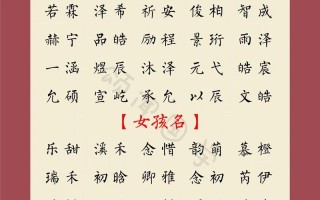 若霖 泽希 祈安 俊柏 智成
赫宁 品皓 励程 景珩 雨泽
一涵 煜辰 沐泽 元弋 皓宸
允硕 宣屹 承允 以辰 文皓
【女孩名】
乐甜 溪禾 念惜 韵萌 慕橙
瑞禾 初晗 卿雅 念初 芮伊